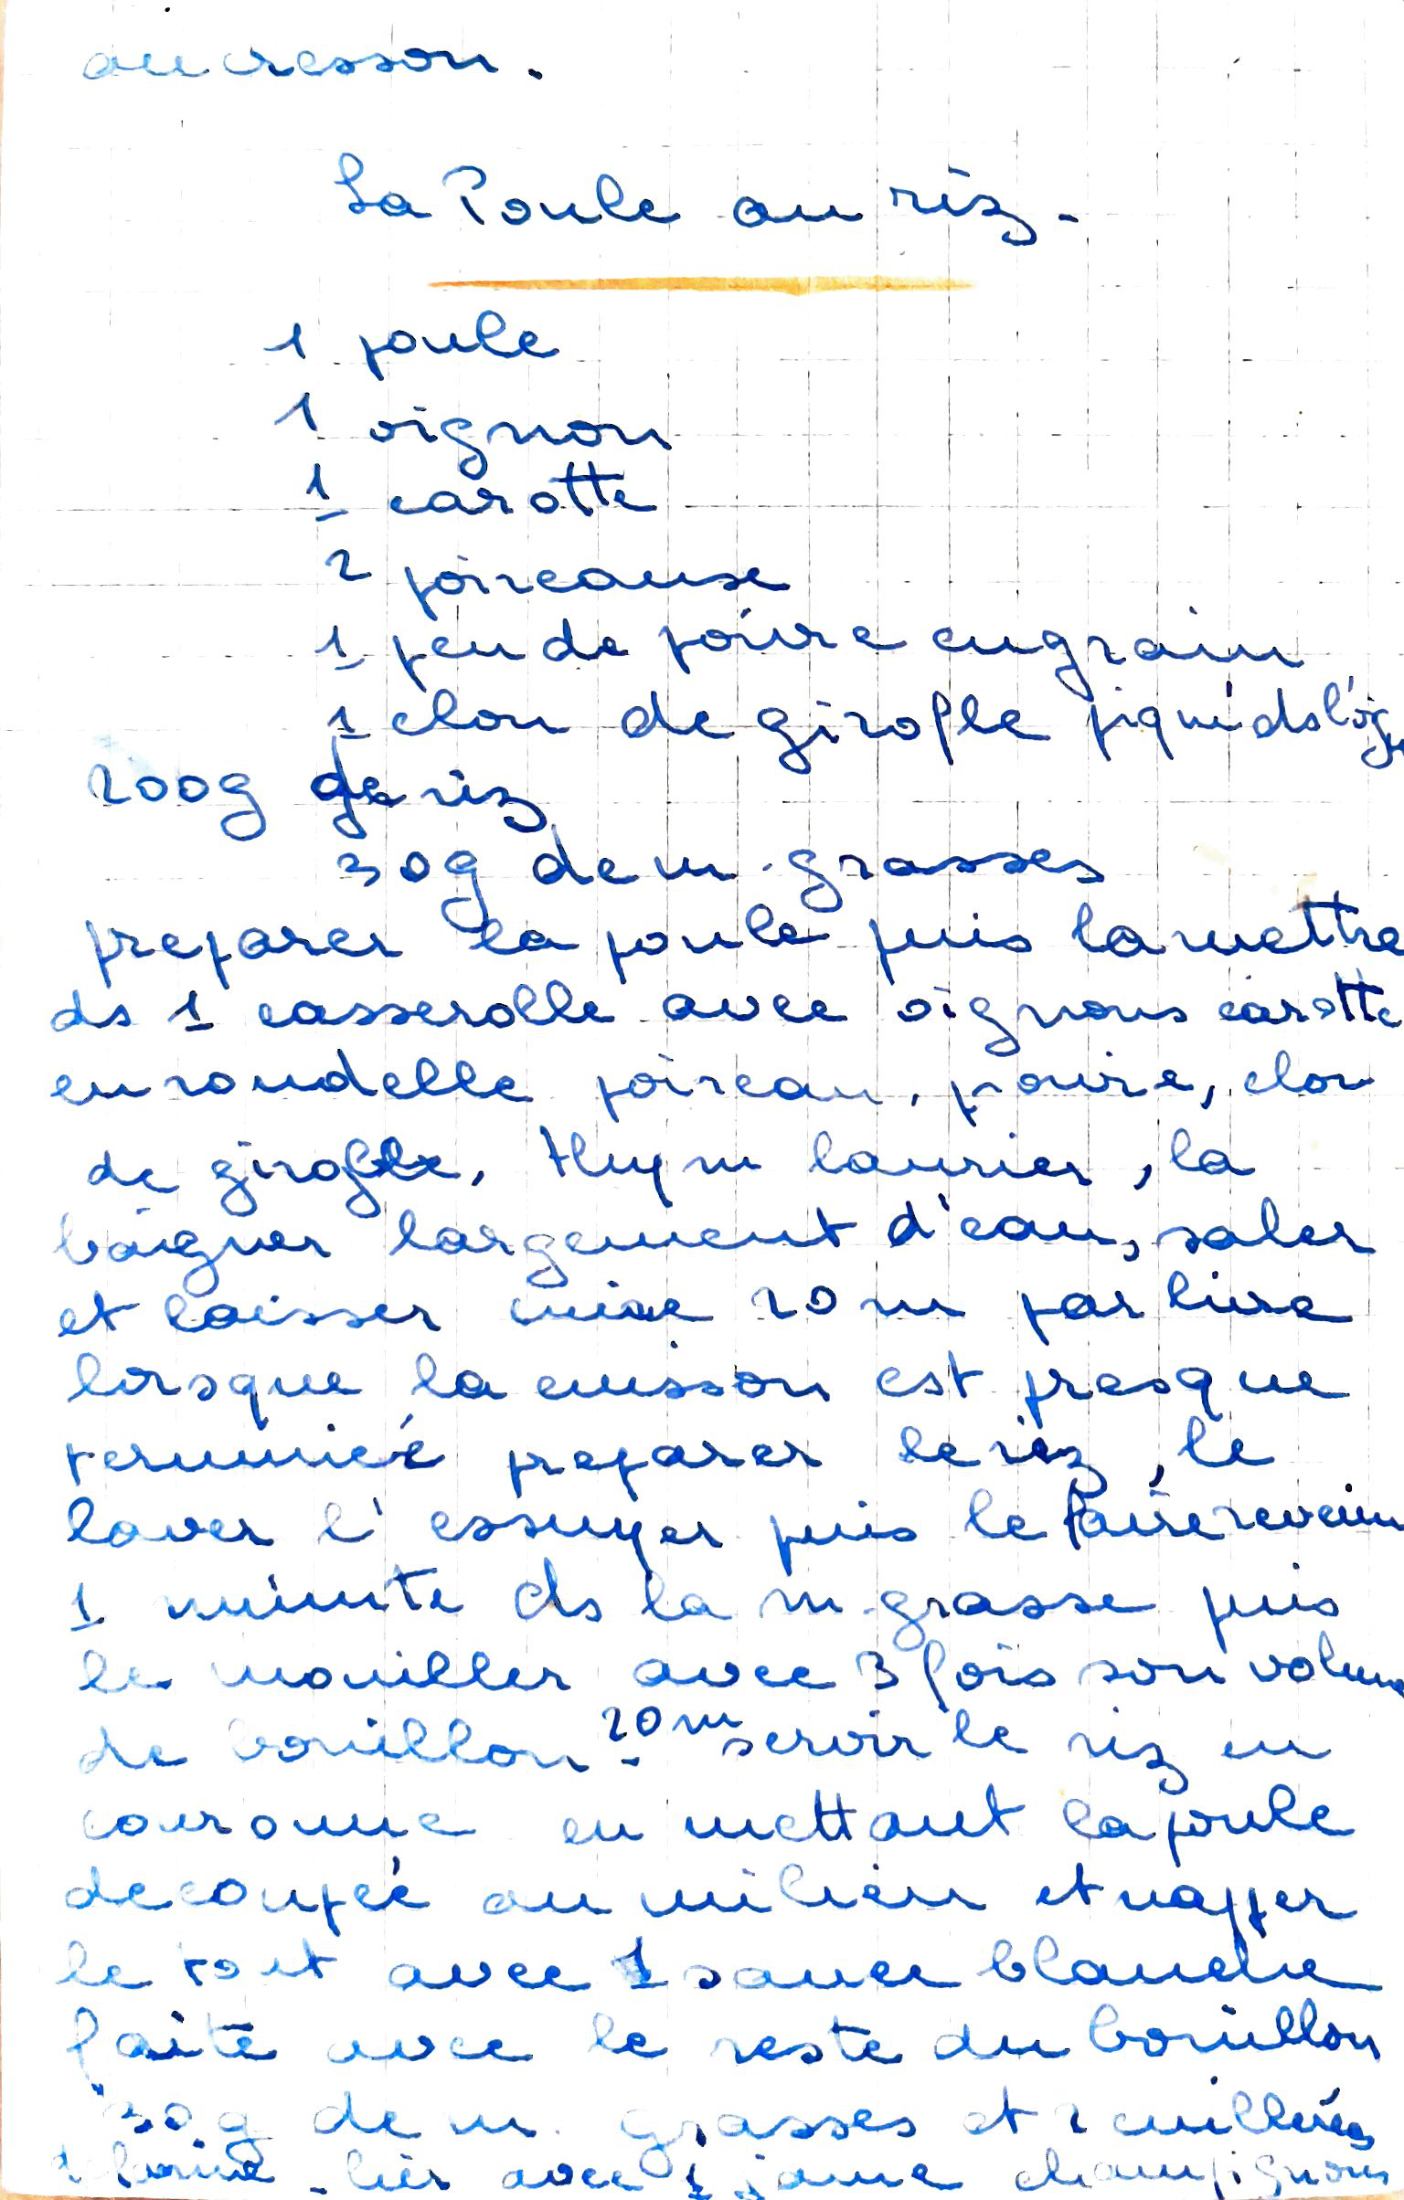 au cresson.
La Poule au riz -
1 poule
1 oignon
1 carotte
2 poireause
1 peu de poivre en grain
1 clou de girofle piqué ds l'oig
200g de riz
30g de m. grasses
preparer la poule puis la mettre
ds 1 casserolle avec oignons carotte
en rondelle poireau, poivre, clou
de girofle, thym laurier, la
baigner largement d'eau, saler
et laisser cuire 20 m par livre
lorsque la cuisson est presque
terminée preparer le riz, le
laver l'essuyer puis le faire revenir
1 minute ds la m. grasse puis
le mouiller avec 3 fois son volume
de bouillon 20 m servir le riz en
couronne en mettant la poule
decoupée au milieu et napper
le tout avec 1 sauce blanche
faite avec le reste du bouillon
30g de m. grasses et 2 cuillerées
de farine - lier avec 1 jaune champignons